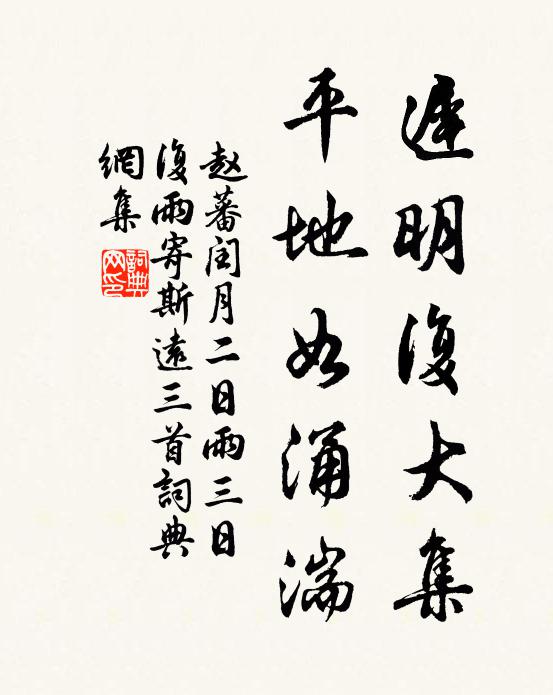 遲明復大集
平地如涌湍
赵蕃闰月二日雨三日
復雨寄斯遠三首詞典
網集
詞典网印